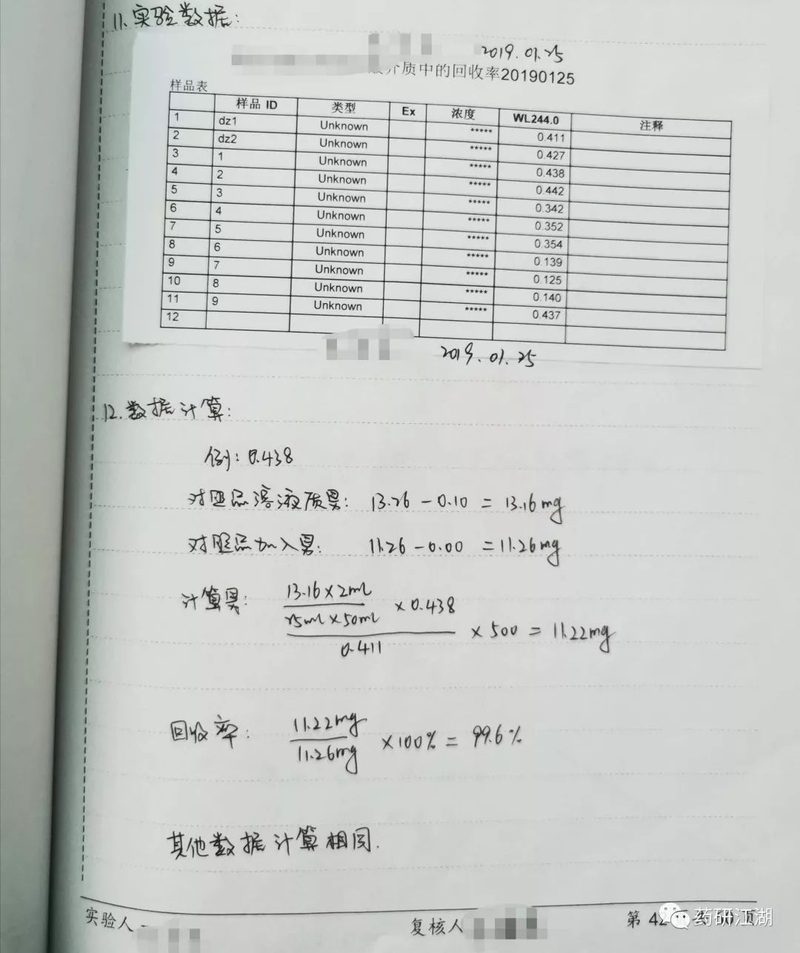 11.实验数据:
2019.01.25
介质中的回收率20190125
样品表
样品 ID 类型 Ex 浓度 WL244.0 注释
1 dz1 Unknown ***** 0.411
2 dz2 Unknown ***** 0.427
3 1 Unknown ***** 0.438
4 2 Unknown ***** 0.442
5 3 Unknown ***** 0.342
6 4 Unknown ***** 0.352
7 5 Unknown ***** 0.354
8 6 Unknown ***** 0.139
9 7 Unknown ***** 0.125
10 8 Unknown ***** 0.140
11 9 Unknown ***** 0.437
12
2019.01.25
12.数据计算:
例:0.438
对照品溶液质量: 13.26-0.10=13.16mg
对照品加入量: 11.26-0.00=11.26mg
13.16×2ml
计算量: ×0.438
25ml×50ml
×500=11.22mg
0.411
11.22mg
回收率: ×100%=99.6%
11.26mg
其他数据计算相同.
实验人 复核人 第 42 页 共 页
药研江湖